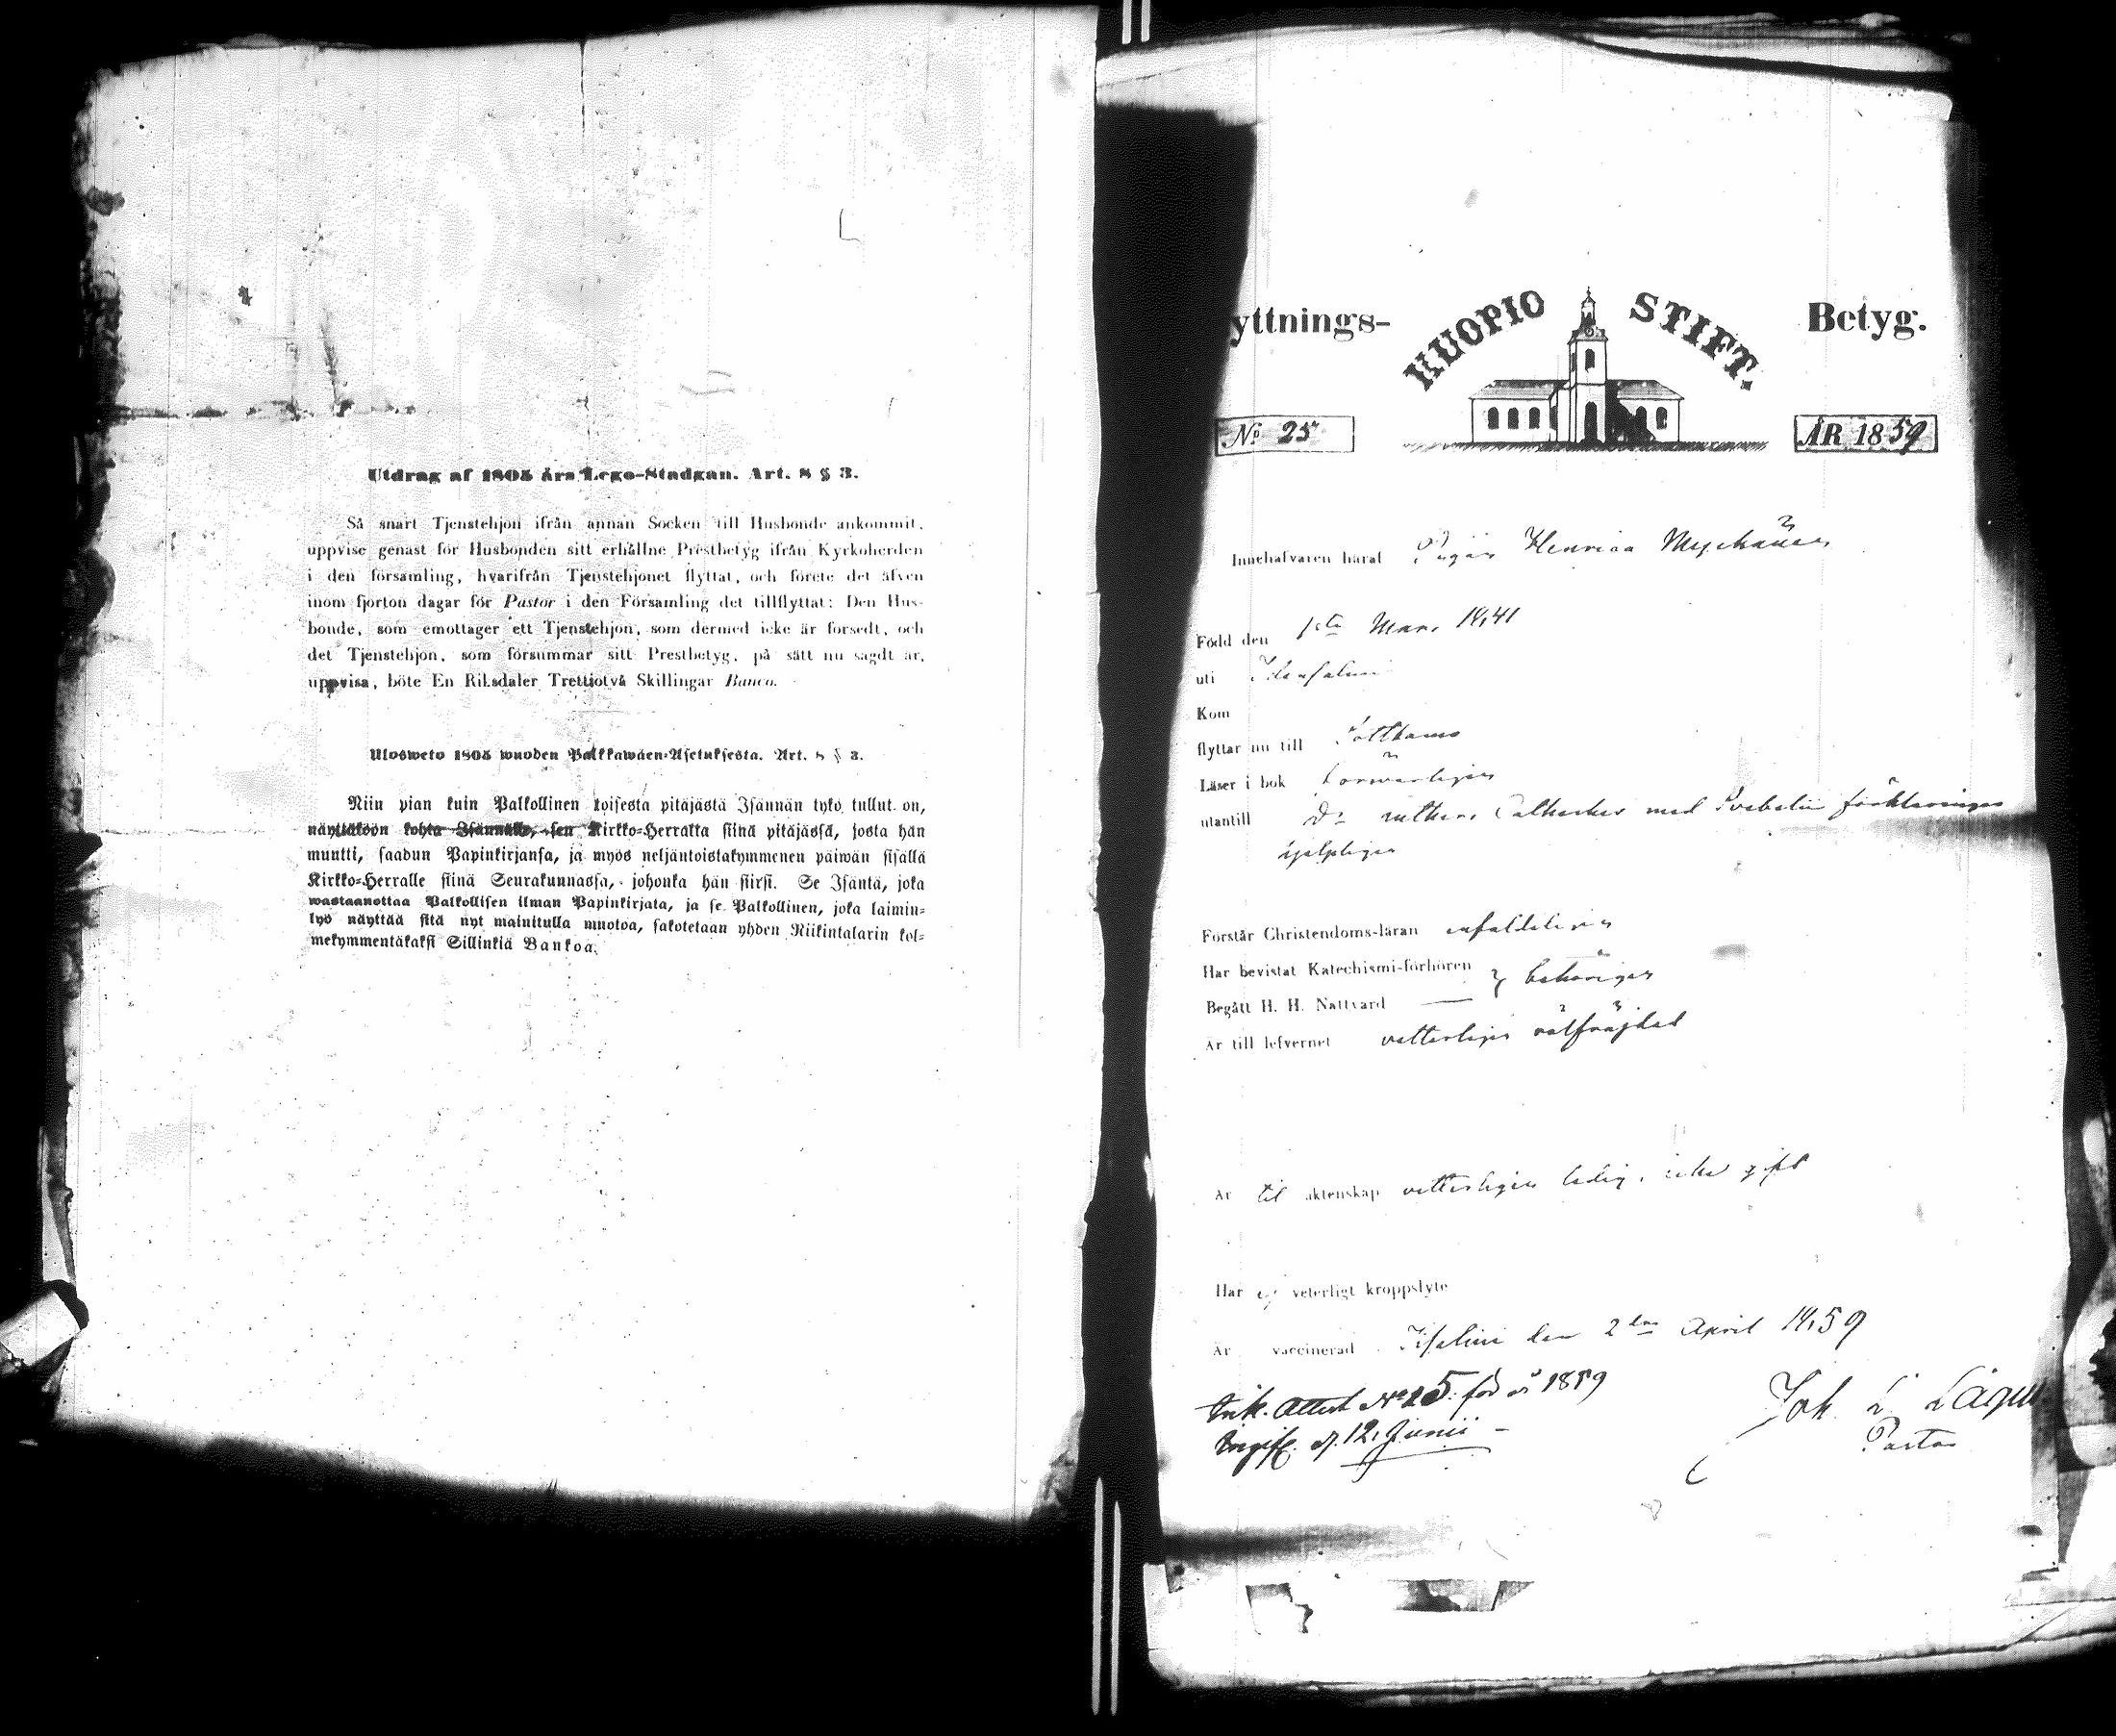 Utdrag af 1805 års Lego-Stadgan. Art. 8 § 3.
Så snart Tjenstehjon ifrån annan Socken till Husbonde ankommit,
uppvise genast för Husbonden sitt erhållne Prestbetyg ifrån Kyrkoherden
i den församling, hvarifrån Tjenstehjonet flyttat, och förete det äfven
inom fjorton dagar för Pastor i den Församling det tillflyttat: Den Hus-
bonde, som emottager ett Tjenstehjon, som dermed icke är försedt, och
det Tjenstehjon, som försummar sitt Prestbetyg, på sätt nu sagdt är,
uppvisa, böte En Riksdaler Trettiotvå Skillingar Banco.
Ulosweto 1805 wuoden Palkkawäen-Asetuksesta. Art. 8 § 3.
Niin pian kuin Palkollinen toisesta pitäjästä Isännän tykö tullut on,
näyttäköön kohta Isännälle, sen Kirkko-Herralta siinä pitäjässä, josta hän
muutti, saadun Papinkirjansa, ja myös neljäntoistakymmenen päiwän sisällä
Kirkko-Herralle siinä Seurakunnassa, johonka hän siirsi. Se Isäntä, joka
wastaanottaa Palkollisen ilman Papinkirjata, ja se Palkollinen, joka laimin-
lyö näyttää sitä nyt mainitulla muotoa, sakotetaan yhden Riikintalarin kol-
mekymmentäkaksi Sillinkiä Bankoa.
yttnings- KUOPIO STIFT. Betyg.
No 25 ÅR 1859
Innehafvaren häraf Pigan Henrica Myckänen
Född den 1sta Mars 1841
uti Idensalmi
Kom
flyttar nu till Sotkamo
Läser i bok försvarligen
utantill Dr Luthers Catheches med Svebelii förklaringar
hjelpligen
Förstår Christendoms-läran enfaldeligen
Har bevistat Katechismi-förhören } behörigen
Begått H. H. Nattvard —
Är till lefvernet vetterligen välfräjdad
Är til äktenskap vetterligen ledig, icke gift
Har ej veterligt kroppslyte
Är vaccinerad Idensalmi den 2dra April 1859
Ink. Attest No 25 för år 1859
Ingif. d. 12. Junii
Joh. L. Lagus
Pastor